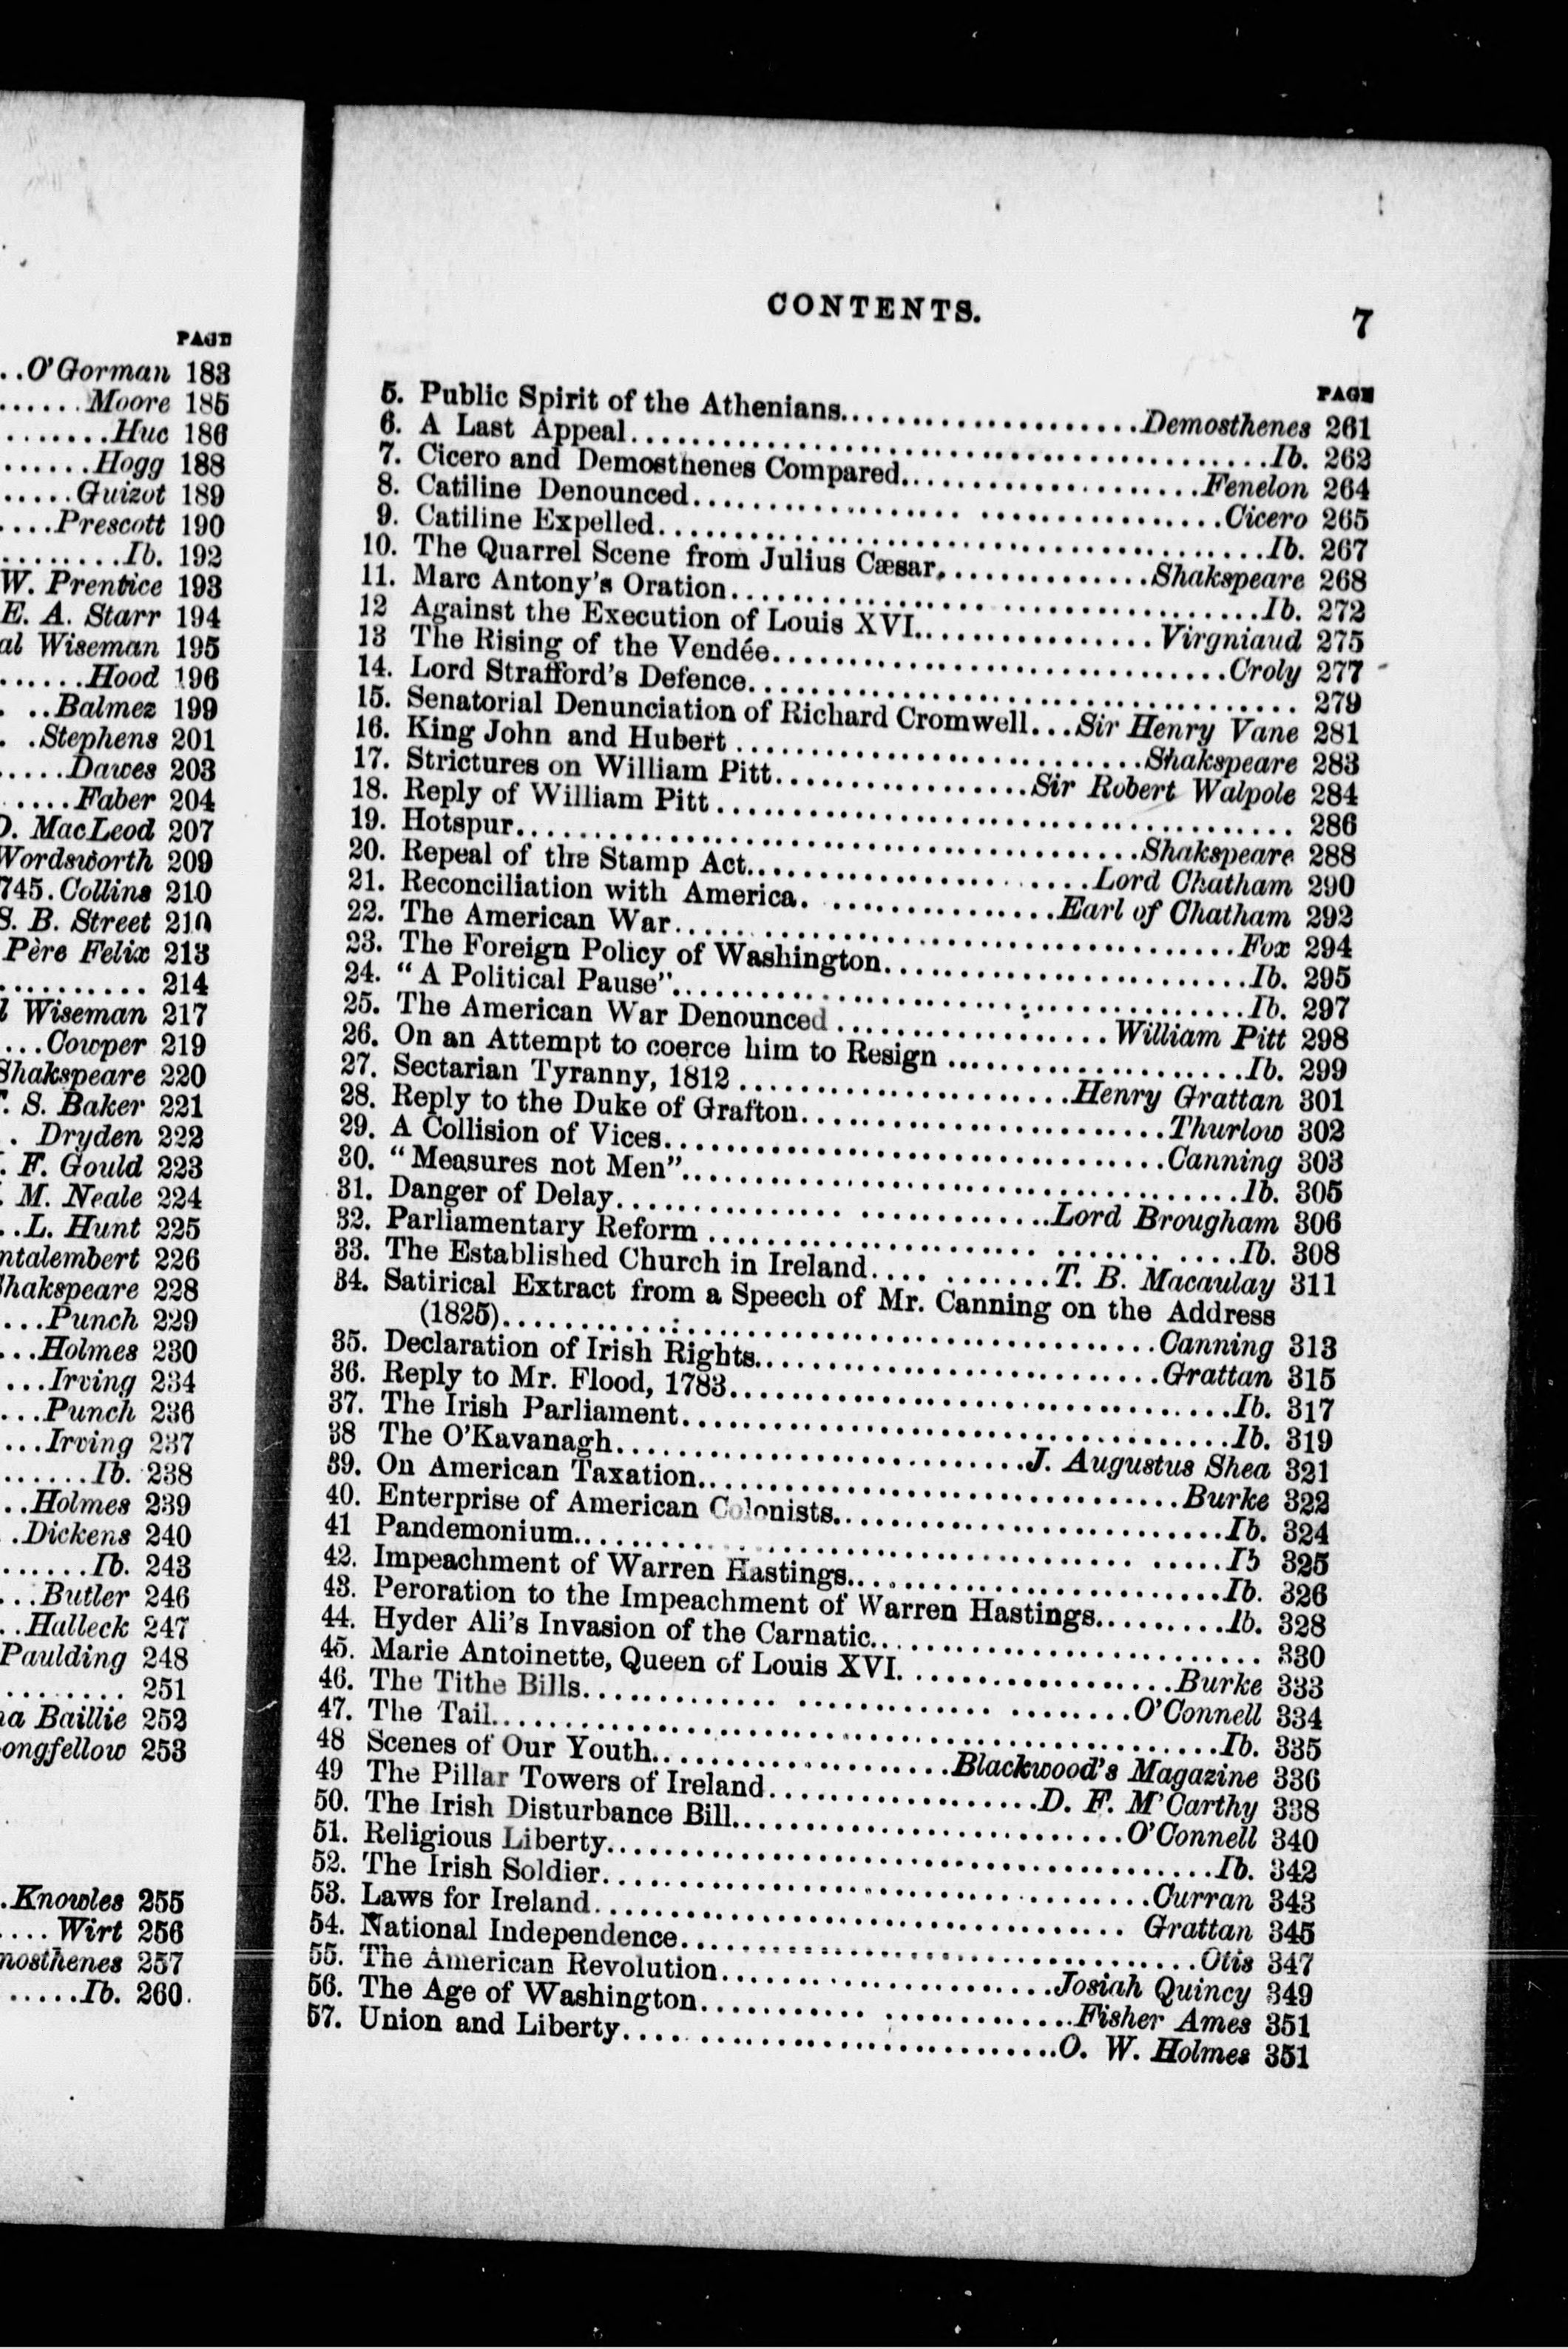 PAGE
..O'Gorman 183
......Moore 185
........Huc 186
......Hogg 188
.....Guizot 189
....Prescott 190
.........Ib. 192
W. Prentice 193
E. A. Starr 194
al Wiseman 195
......Hood 196
. ..Balmez 199
. .Stephens 201
.....Dawes 203
.....Faber 204
MacLeod 207
Wordsworth 209
745.Collins 210
S. B. Street 210
Père Felix 213
.......... 214
Wiseman 217
...Cowper 219
Shakspeare 220
S. Baker 221
. Dryden 222
F. Gould 223
M. Neale 224
..L. Hunt 225
ntalembert 226
Shakspeare 228
...Punch 229
...Holmes 230
....Irving 234
...Punch 236
...Irving 237
......Ib. 238
..Holmes 239
.Dickens 240
......Ib. 243
...Butler 246
..Halleck 247
Paulding 248
........ 251
na Baillie 252
ongfellow 253
.Knowles 255
....Wirt 256
mosthenes 257
.....Ib. 260.
CONTENTS. 7
PAGE
5. Public Spirit of the Athenians....................Demosthenes 261
6. A Last Appeal....................Ib. 262
7. Cicero and Demosthenes Compared....................Fenelon 264
8. Catiline Denounced....................Cicero 265
9. Catiline Expelled....................Ib. 267
10. The Quarrel Scene from Julius Cæsar...............Shakspeare 268
11. Marc Antony's Oration....................Ib. 272
12 Against the Execution of Louis XVI................Virgniaud 275
13 The Rising of the Vendée....................Croly 277
14. Lord Strafford's Defence.................... 279
15. Senatorial Denunciation of Richard Cromwell...Sir Henry Vane 281
16. King John and Hubert....................Shakspeare 283
17. Strictures on William Pitt.................Sir Robert Walpole 284
18. Reply of William Pitt.................... 286
19. Hotspur....................Shakspeare 288
20. Repeal of the Stamp Act....................Lord Chatham 290
21. Reconciliation with America. ...............Earl of Chatham 292
22. The American War....................Fox 294
23. The Foreign Policy of Washington....................Ib. 295
24. “A Political Pause”....................Ib. 297
25. The American War Denounced ..................William Pitt 298
26. On an Attempt to coerce him to Resign ....................Ib. 299
27. Sectarian Tyranny, 1812 ....................Henry Grattan 301
28. Reply to the Duke of Grafton....................Thurlow 302
29. A Collision of Vices....................Canning 303
30. “Measures not Men”....................Ib. 305
31. Danger of Delay....................Lord Brougham 306
32. Parliamentary Reform ....................Ib. 308
33. The Established Church in Ireland.... .......T. B. Macaulay 311
34. Satirical Extract from a Speech of Mr. Canning on the Address
(1825)....................Canning 313
35. Declaration of Irish Rights....................Grattan 315
36. Reply to Mr. Flood, 1783....................Ib. 317
37. The Irish Parliament....................Ib. 319
38 The O'Kavanagh....................J. Augustus Shea 321
39. On American Taxation....................Burke 322
40. Enterprise of American Colonists....................Ib. 324
41 Pandemonium....................Ib 325
42. Impeachment of Warren Hastings....................Ib. 326
43. Peroration to the Impeachment of Warren Hastings.........Ib. 328
44. Hyder Ali's Invasion of the Carnatic.................... 330
45. Marie Antoinette, Queen of Louis XVI..................Burke 333
46. The Tithe Bills....................O'Connell 334
47. The Tail....................Ib. 335
48 Scenes of Our Youth....................Blackwood's Magazine 336
49 The Pillar Towers of Ireland..................D. F. M'Carthy 338
50. The Irish Disturbance Bill....................O'Connell 340
51. Religious Liberty....................Ib. 342
52. The Irish Soldier....................Curran 343
53. Laws for Ireland.................... Grattan 345
54. National Independence....................Otis 347
55. The American Revolution....................Josiah Quincy 349
56. The Age of Washington....................Fisher Ames 351
57. Union and Liberty....................O. W. Holmes 351